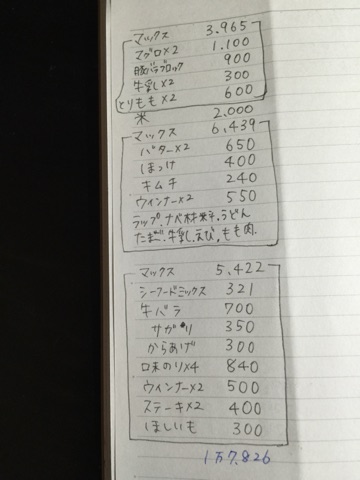 マックス 3.965
マグロ×2 1.100
豚バラブロック 900
牛乳×2 300
とりもも×2 600
米 2.000
マックス 6,439
バター×2 650
ほっけ 400
キムチ 240
ウィンナー×2 550
ラップ.ナベ材料.うどん
たまご.牛乳.えび.もも肉.
マックス 5.422
シーフードミックス 321
牛バラ 700
サガリ 350
からあげ 300
口未のり×4 840
ウィンナー×2 500
ステーキ×2 400
ほしいも 300
1万7.826